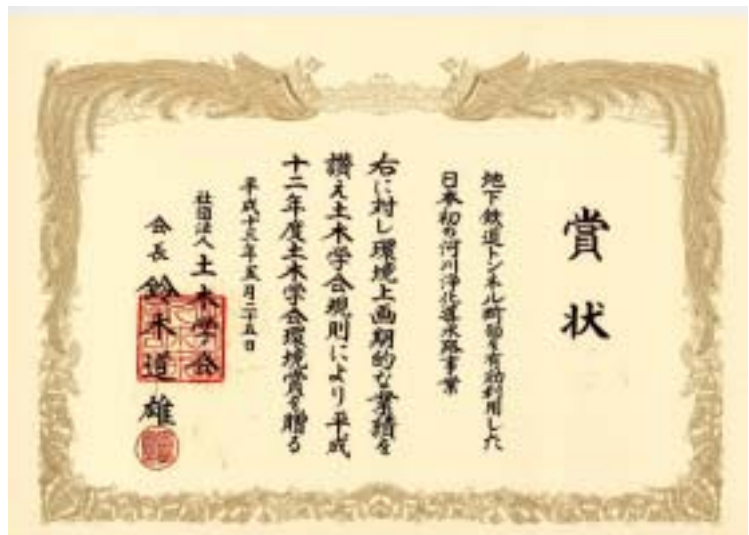 賞状
地下鉄道トンネル断面を有効利用した
日本初の河川浄化導水路事業
右に対し環境上画期的な業績を
讃え土木学会規則により平成
十二年度土木学会環境賞を贈る
平成十三年五月二十五日
社団法人土木学会
会長 鈴木道雄